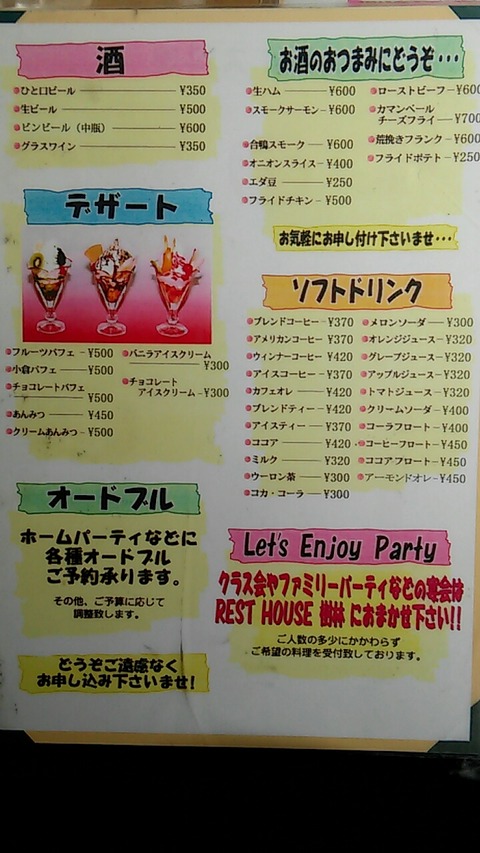 酒
ひと口ビール ¥350
生ビール ¥500
ビンビール（中瓶） ¥600
グラスワイン ¥350
お酒のおつまみにどうぞ・・・
生ハム ¥600
スモークサーモン ¥600
台鴨スモーク ¥600
オニオンスライス ¥400
エダ豆 ¥250
フライドチキン ¥500
ローストビーフ ¥600
カマンベール
チーズフライ ¥700
荒挽きフランク ¥600
フライドポテト ¥250
お気軽にお申し付け下さいませ・・・
デザート
フルーツパフェ ¥500
小倉パフェ ¥500
チョコレートパフェ
¥500
あんみつ ¥450
クリームあんみつ ¥500
バニラアイスクリーム
¥300
チョコレート
アイスクリーム ¥300
ソフトドリンク
ブレンドコーヒー ¥370
アメリカンコーヒー ¥370
ウィンナーコーヒー ¥420
アイスコーヒー ¥370
カフェオレ ¥420
ブレンドティー ¥420
アイスティー ¥370
ココア ¥420
ミルク ¥320
ウーロン茶 ¥300
コカ・コーラ ¥300
メロンソーダ ¥300
オレンジジュース ¥320
グレープジュース ¥320
アップルジュース ¥320
トマトジュース ¥320
クリームソーダ ¥400
コーラフロート ¥400
コーヒーフロート ¥450
ココアフロート ¥450
アーモンドオレ ¥450
オードブル
ホームパーティなどに
各種オードブル
ご予約承ります。
その他、ご予算に応じて
調整致します。
どうぞご遠慮なく
お申し込み下さいませ!
Let's Enjoy Party
クラス会やファミリーパーティなどの宴会は
REST HOUSE 樹林 におまかせ下さい!!
ご人数の多少にかかわらず
ご希望の料理を受付致しております。